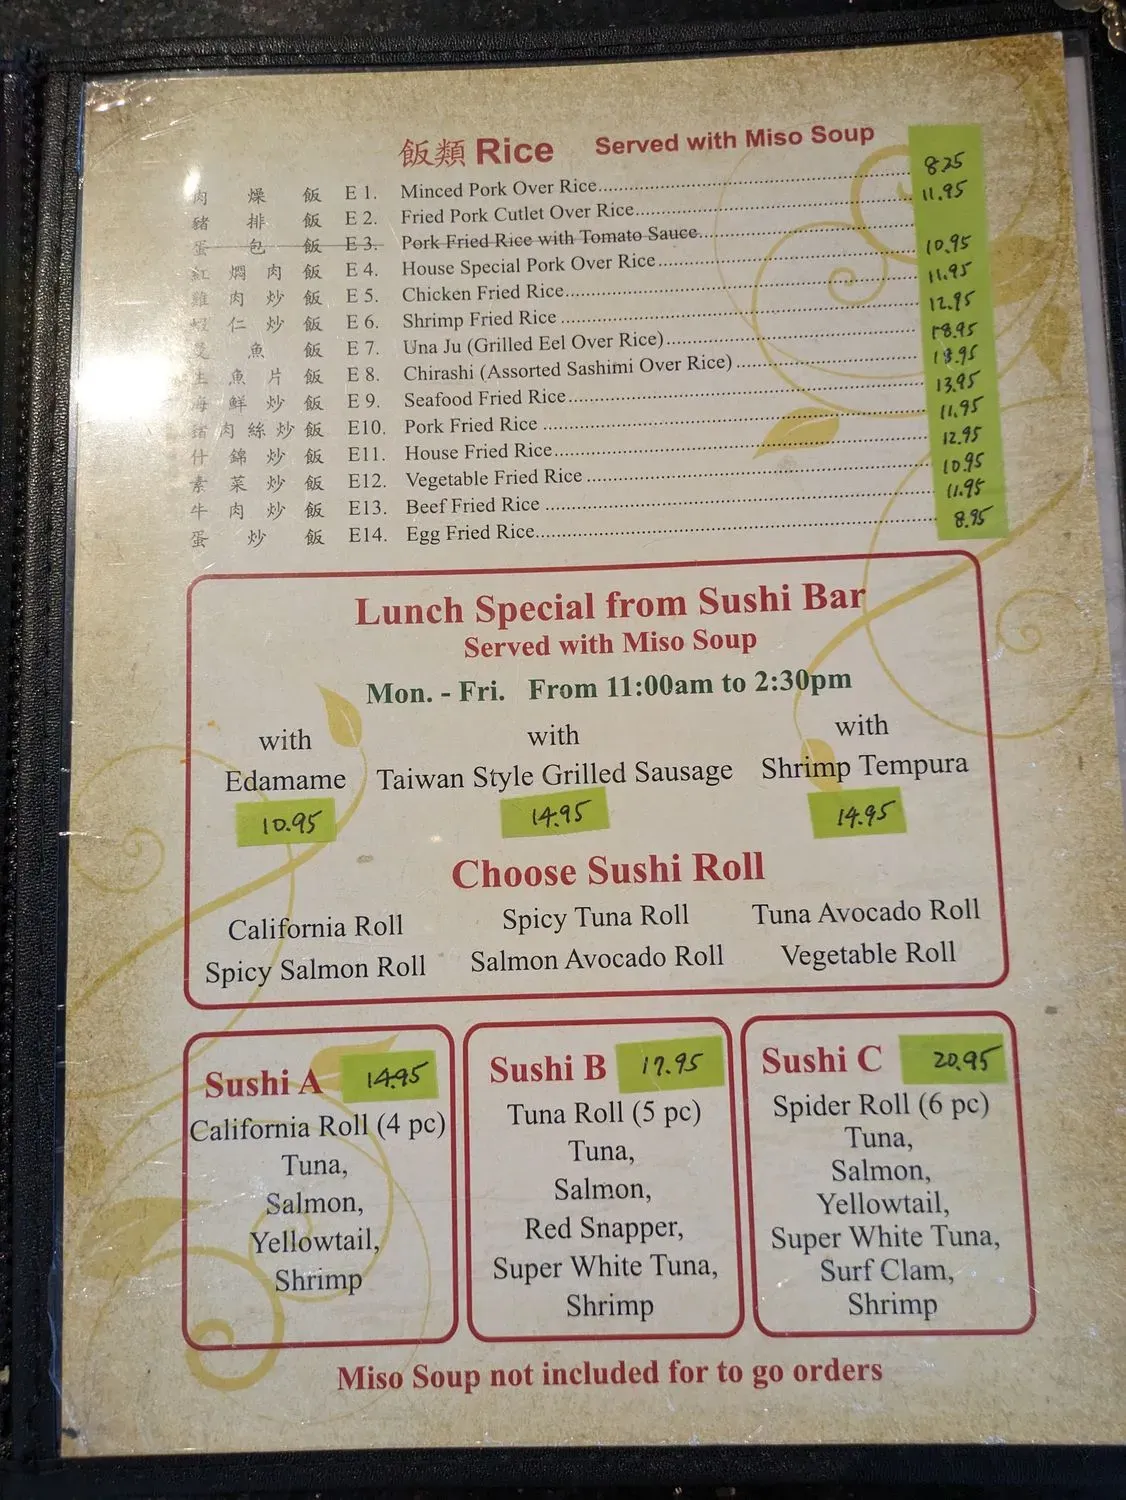 飯類 Rice Served with Miso Soup
肉燥飯 E 1. Minced Pork Over Rice 8.25
豬排飯 E 2. Fried Pork Cutlet Over Rice 11.95
蛋包飯 E 3. Pork Fried Rice with Tomato Sauce
紅燜肉飯 E 4. House Special Pork Over Rice 10.95
雞肉炒飯 E 5. Chicken Fried Rice 11.95
蝦仁炒飯 E 6. Shrimp Fried Rice 12.95
魚飯 E 7. Una Ju (Grilled Eel Over Rice) 18.95
生魚片飯 E 8. Chirashi (Assorted Sashimi Over Rice) 18.95
海鮮炒飯 E 9. Seafood Fried Rice 13.95
豬肉絲炒飯 E10. Pork Fried Rice 11.95
什錦炒飯 E11. House Fried Rice 12.95
素菜炒飯 E12. Vegetable Fried Rice 10.95
牛肉炒飯 E13. Beef Fried Rice 11.95
蛋炒飯 E14. Egg Fried Rice 8.95
Lunch Special from Sushi Bar
Served with Miso Soup
Mon. - Fri. From 11:00am to 2:30pm
with with with
Edamame Taiwan Style Grilled Sausage Shrimp Tempura
10.95 14.95 14.95
Choose Sushi Roll
California Roll Spicy Tuna Roll Tuna Avocado Roll
Spicy Salmon Roll Salmon Avocado Roll Vegetable Roll
Sushi A 14.95
California Roll (4 pc)
Tuna,
Salmon,
Yellowtail,
Shrimp
Sushi B 17.95
Tuna Roll (5 pc)
Tuna,
Salmon,
Red Snapper,
Super White Tuna,
Shrimp
Sushi C 20.95
Spider Roll (6 pc)
Tuna,
Salmon,
Yellowtail,
Super White Tuna,
Surf Clam,
Shrimp
Miso Soup not included for to go orders